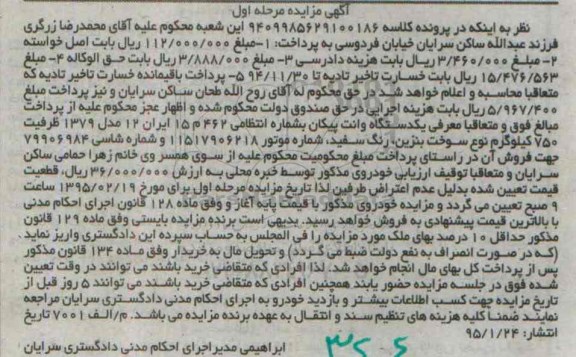 آگهی مزایده مرحله اول
نظر به اینکه در پرونده کلاسه ۹۴۰۹۹۸۵۶۲۹۱۰۰۱۸۶ این شعبه محکوم علیه آقای محمدرضا زرگری
فرزند عبدالله ساکن سرایان خیابان فردوسی به پرداخت: ۱-مبلغ ۱۱۲/۰۰۰/۰۰۰ ریال بابت اصل خواسته
۲- مبلغ ۳/۴۶۰/۰۰۰ ریال بابت هزینه دادرسی ۳- مبلغ ۳/۸۸۸/۰۰۰ ریال بابت حق الوکاله ۴- مبلغ
۱۵/۴۷۶/۵۶۳ ریال بابت خسارت تاخیر تادیه تا ۹۴/۱۱/۳۰ ۵- پرداخت باقیمانده خسارت تاخیر تادیه که
متعاقبا محاسبه و اعلام خواهد شد در حق محکوم له آقای روح الله طحان ساکن سرایان و نیز پرداخت مبلغ
۵/۹۶۷/۴۰۰ ریال بابت هزینه اجرایی در حق صندوق دولت محکوم شده و اظهار عجز محکوم علیه از پرداخت
مبالغ فوق و متعاقبا معرفی یکدستگاه وانت پیکان بشماره انتظامی ۴۶۲ م ۱۵ ایران ۱۲ مدل ۱۳۷۹ ظرفیت
۷۵۰ کیلوگرم نوع سوخت بنزین، رنگ سفید، شماره موتور ۱۱۵۱۷۹۰۶۲۱۸ و شماره شاسی ۷۹۹۰۶۹۸۴
جهت فروش آن در راستای پرداخت مبلغ محکومیت محکوم علیه از سوی همسر وی خانم زهرا حمامی ساکن
سرایان و متعاقبا توقیف ارزیابی خودروی مذکور توسط خبره محلی به ارزش ۳۶/۰۰۰/۰۰۰ ریال، قطعیت
قیمت تعیین شده بدلیل عدم اعتراض طرفین لذا تاریخ مزایده مرحله اول برای مورخ ۱۳۹۵/۰۲/۱۹ ساعت
۹ صبح تعیین می گردد و مزایده خودروی مذکور با قیمت پایه آغاز و وفق ماده ۱۲۸ قانون اجرای احکام مدنی
با بالاترین قیمت پیشنهادی به فروش خواهد رسید. بدیهی است برنده مزایده بایستی وفق ماده ۱۲۹ قانون
مذکور حداقل ۱۰ درصد بهای ملک مورد مزایده را فی المجلس به حساب سپرده این دادگستری واریز نماید.
(که در صورت انصراف به نفع دولت ضبط می گردد) و تحویل مال به خریدار وفق ماده ۱۳۴ قانون مذکور
پس از پرداخت کل بهای مال انجام خواهد شد. لذا افرادی که متقاضی خرید باشند می توانند در وقت تعیین
شده فوق در جلسه مزایده حضور یابند همچنین افرادی که متقاضی خرید باشند می توانند ۵ روز قبل از
تاریخ مزایده جهت کسب اطلاعات بیشتر و بازدید خودرو به اجرای احکام مدنی دادگستری سرایان مراجعه
نمایند ضمنا کلیه هزینه های تنظیم سند و انتقال به عهده برنده مزایده می باشد. م/الف ۷۰۰۱ تاریخ
انتشار: ۹۵/۱/۲۴
ابراهیمی مدیر اجرای احکام مدنی دادگستری سرایان